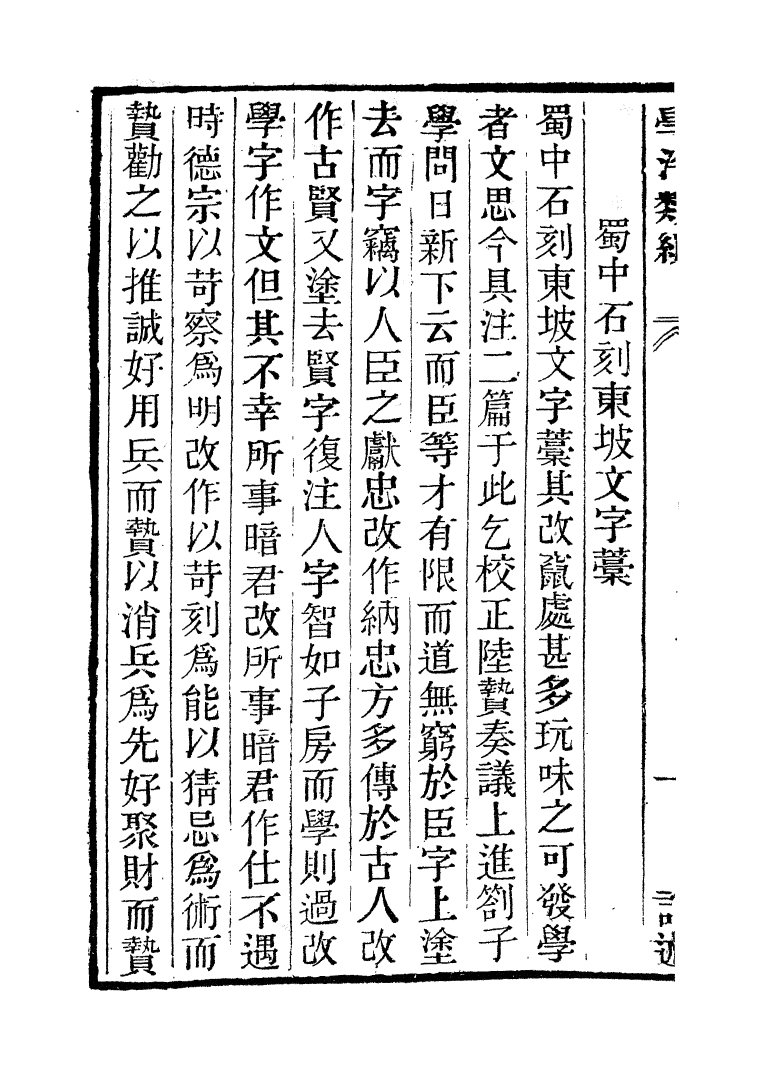 蜀中石刻東坡文字藁
蜀中石刻東坡文字藁其改竄處甚多玩味之可發學
者文思今具注二篇于此乞校正陸贄奏議上進劄子
學問日新下云而臣等才有限而道無窮於臣字上塗
去而字竊以人臣之獻忠改作納忠方多傳於古人改
作古賢又塗去賢字復注人字智如子房而學則過改
學字作文但其不幸所事暗君改所事暗君作仕不遇
時德宗以苛察爲明改作以苛刻爲能以猜忌爲術而
贄勸之以推誠好用兵而贄以消兵爲先好聚財而贄